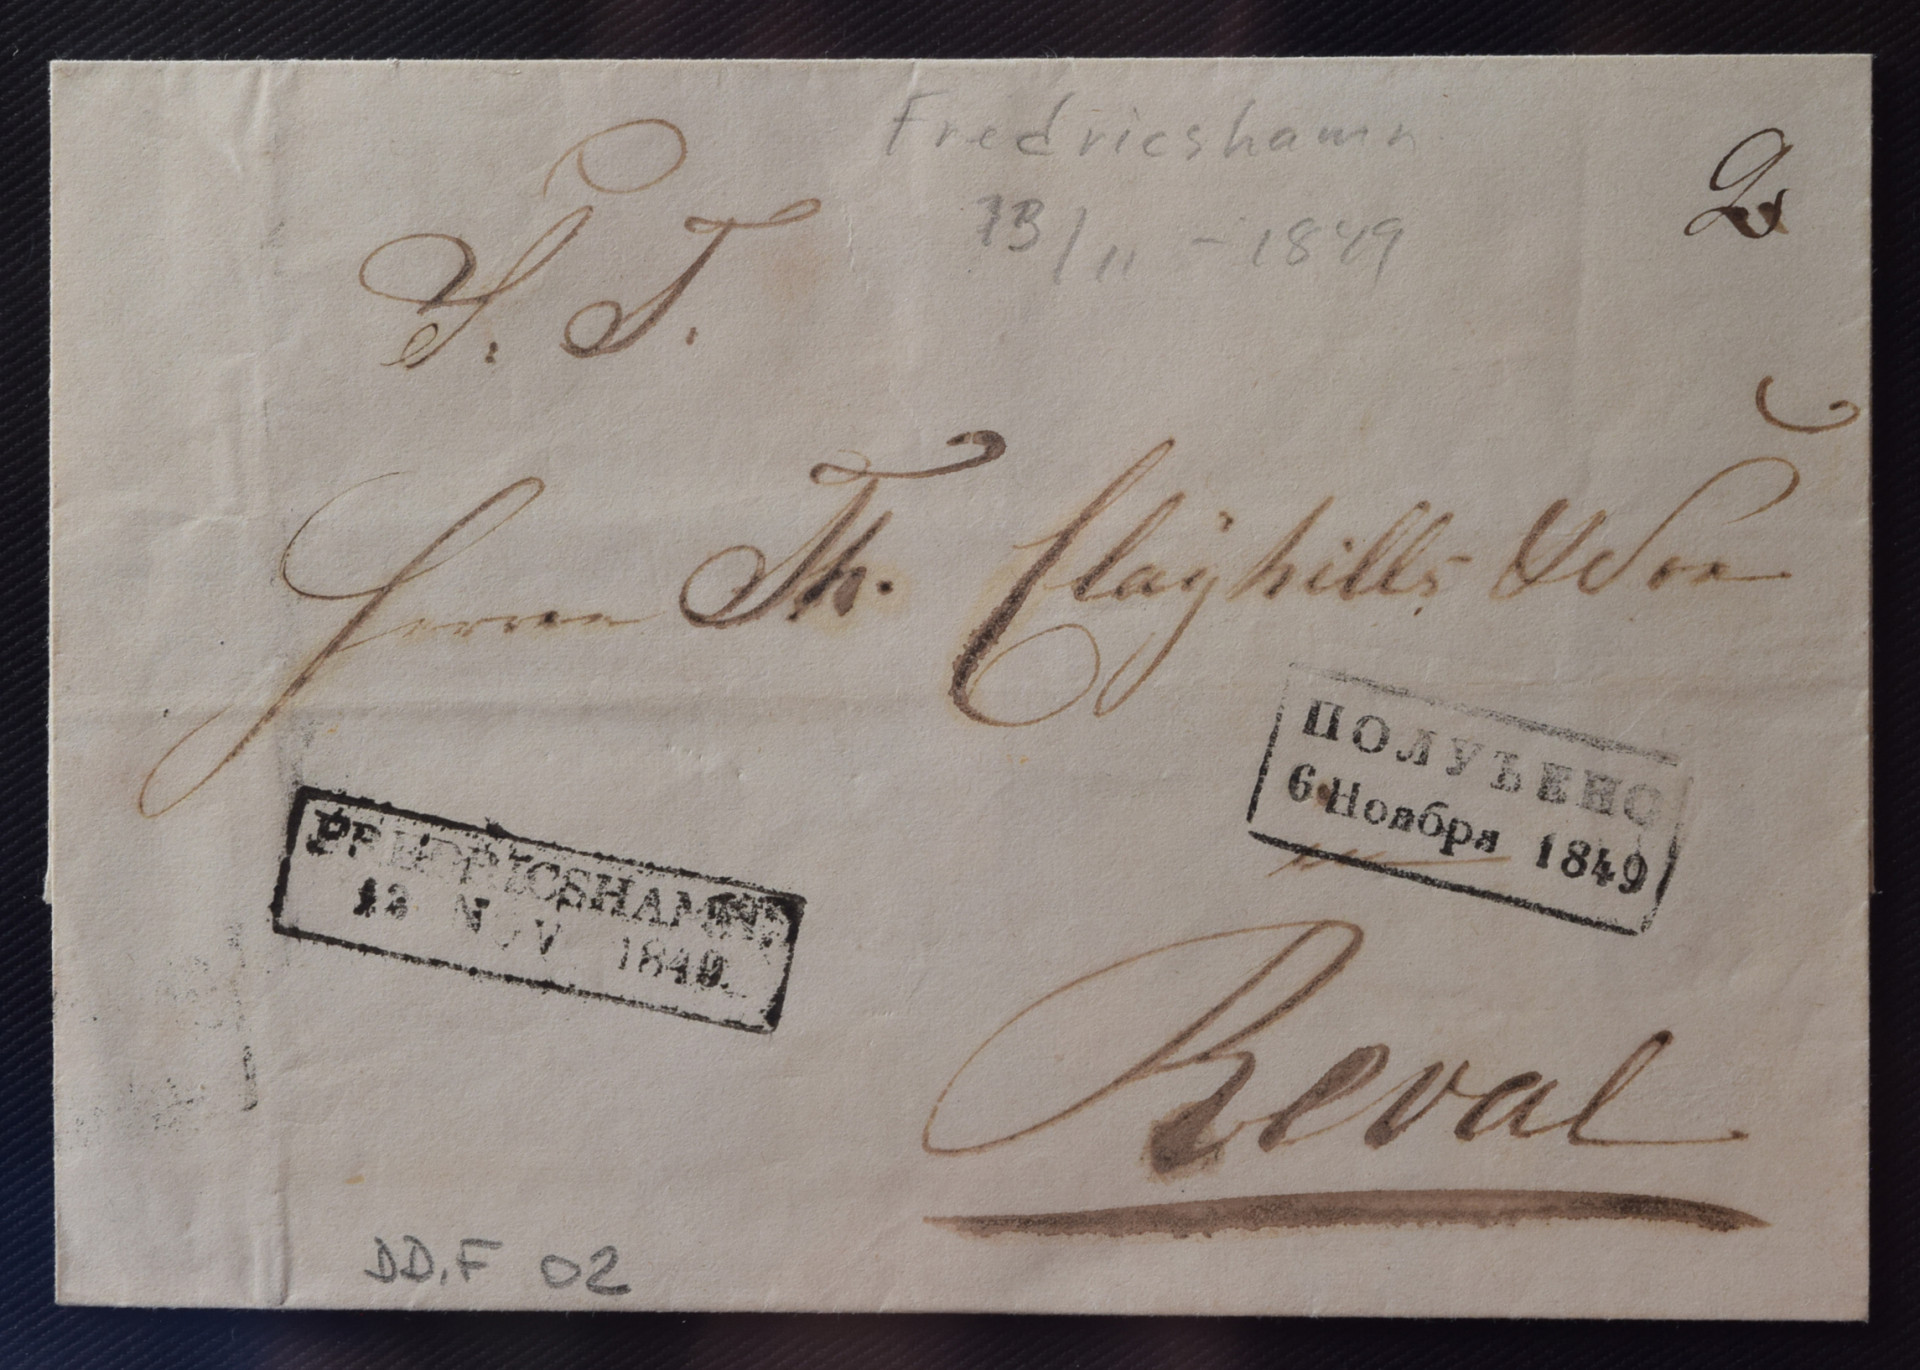 Fredricshamn
13/11 - 1849
S. T.
Herrn Th. Clayhills & Son
ПОЛУЧЕНО
6 Ноября 1849
FREDRICSHAMN
13 NOV 1849.
Reval
DD.F 02